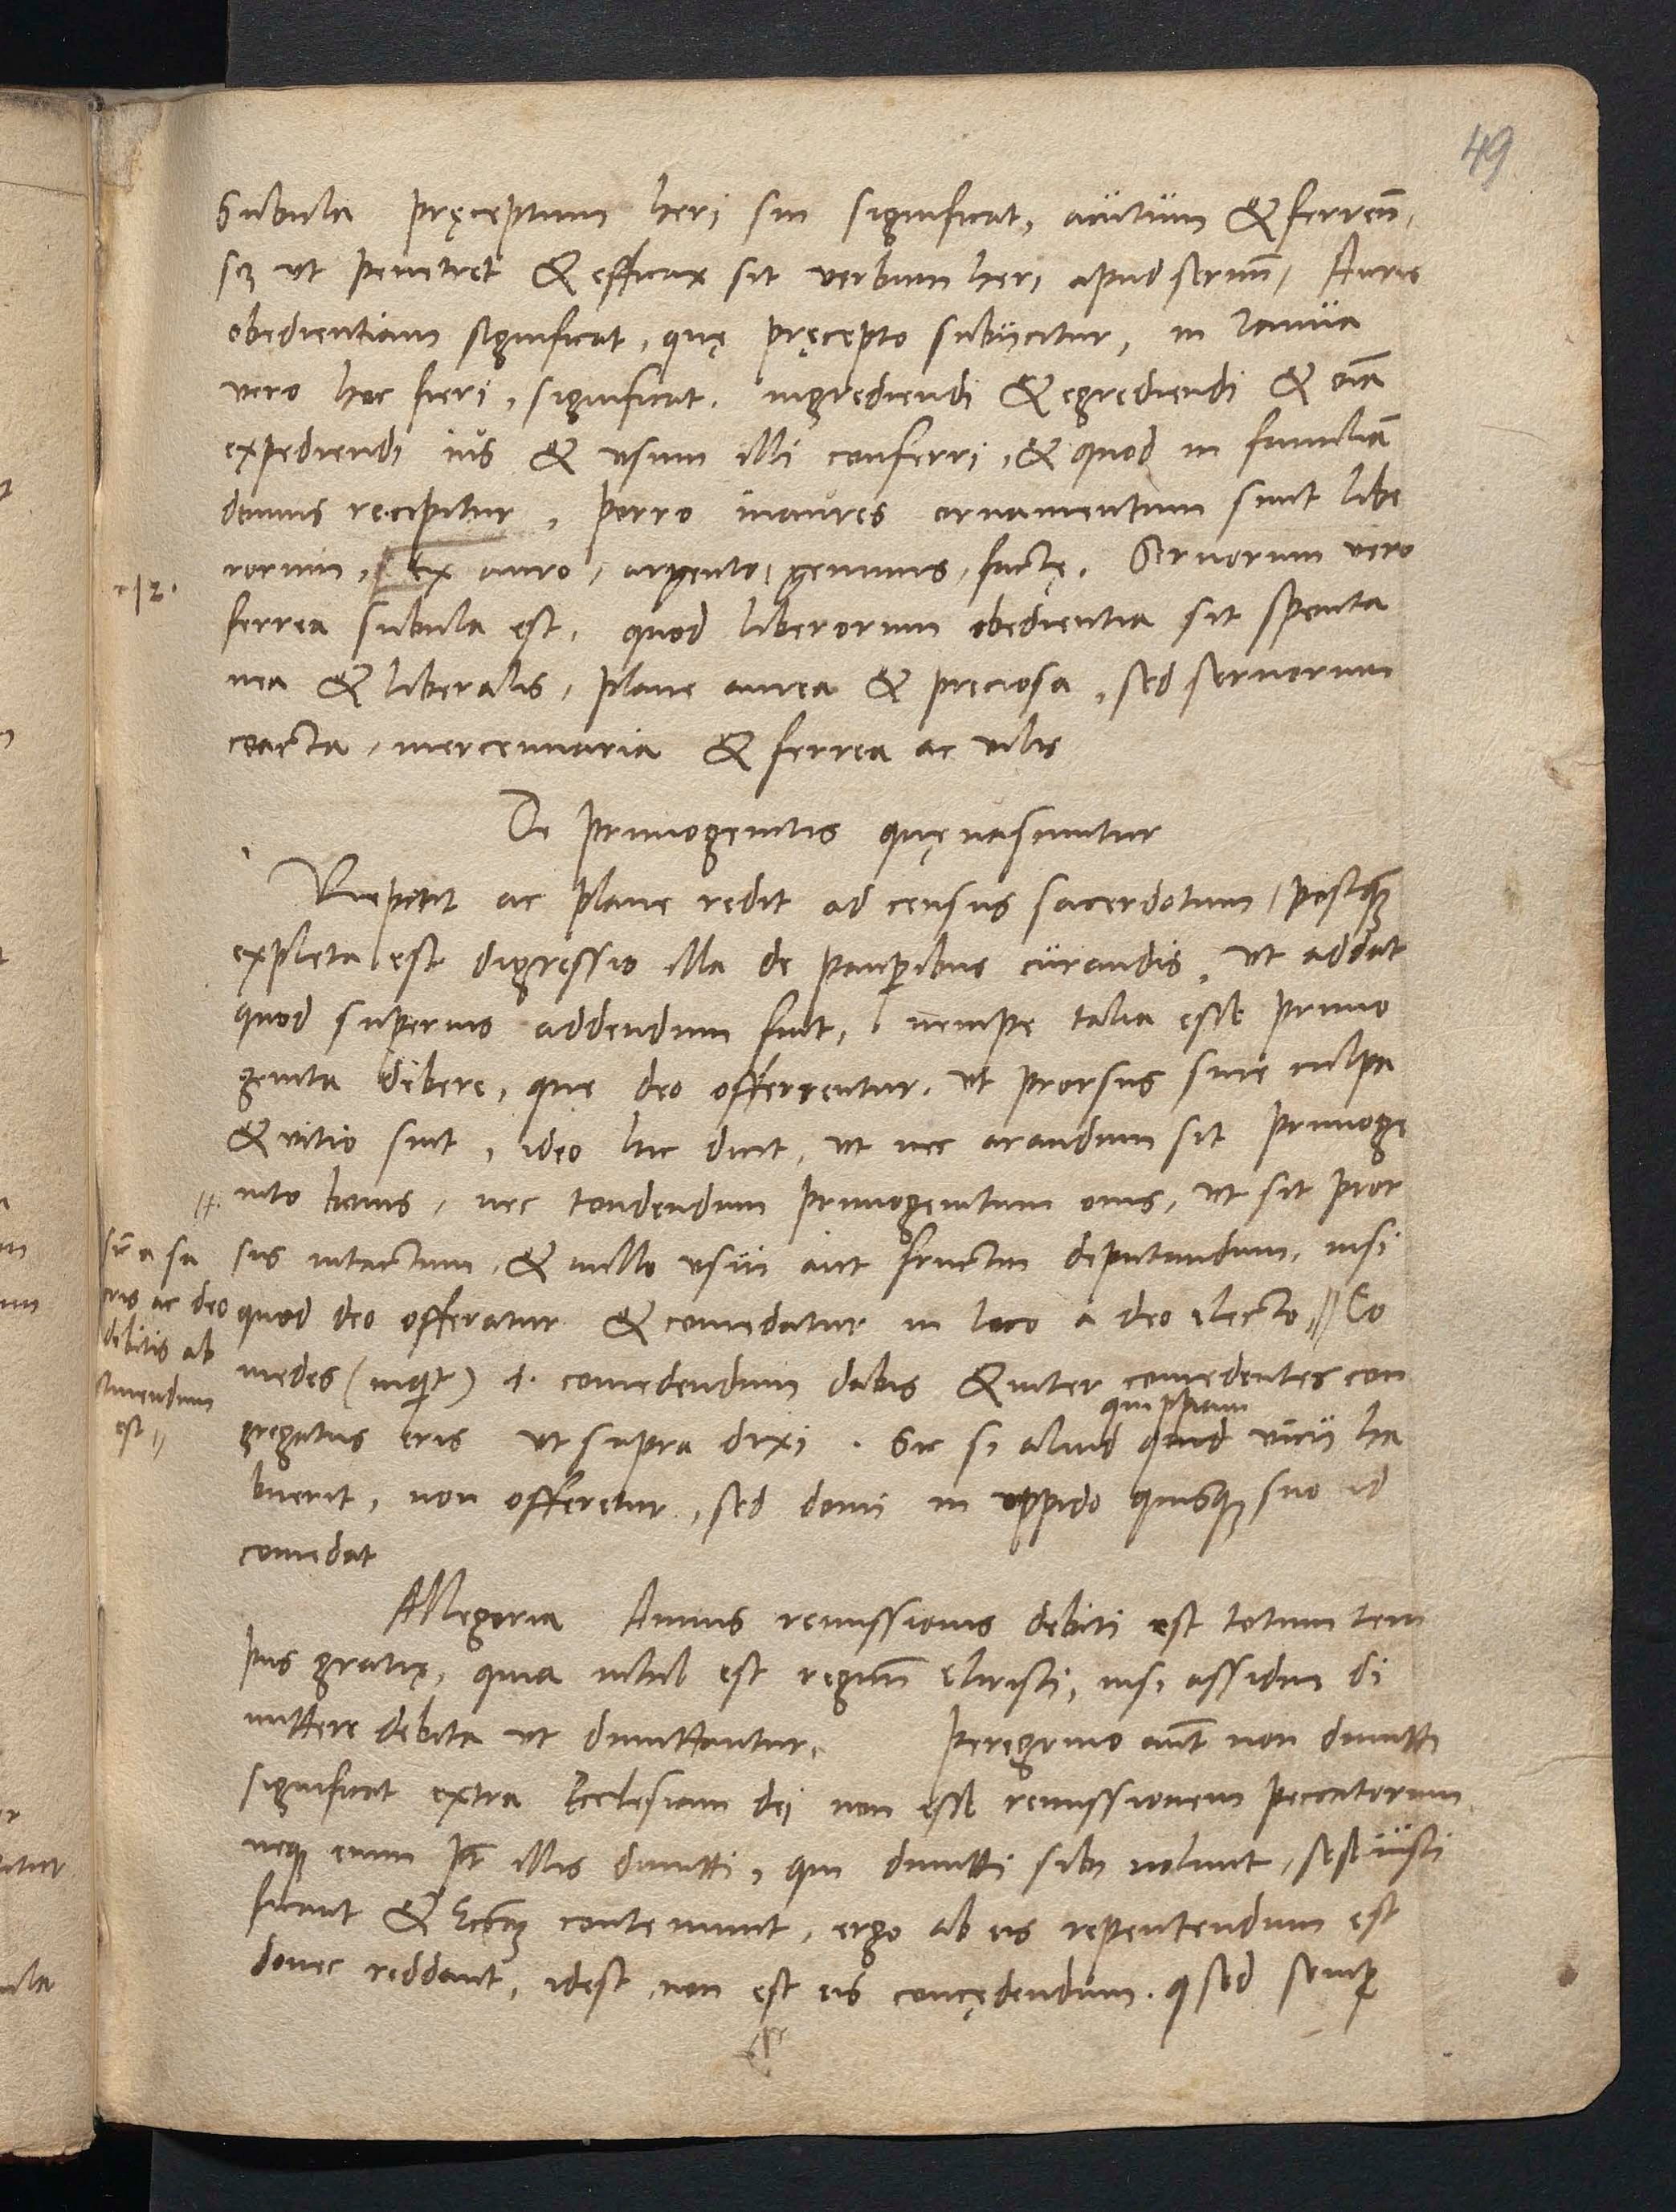 49
Subula pręceptum heri sui significat, acutum & ferreũ,
scz ut penetret & efficax sit verbum heri apud seruũ, Auris
obedientiam significat, quę pręcepto subijcitur, in Ianua
vero hoc fieri, significat. ingrediendi & egrediendi & oĩa
expediendi ius & usum illi conferri, & quod in familiã
domus recipitur, porro inaures ornamentum sunt libe
rorum, ex auro, argento, gemmis, factę. Seruorum vero
ferrea subula est, quod liberorum obedientia sit sponta
nea & liberalis, plane aurea & preciosa, sed seruorum
coacta, mercennaria & ferrea ac vilis
De primogenitis quę nascuntur
Repetit ac plane redit ad census sacerdotum, postq̃
expleta est digressio illa de pauperibus curandis, ut addat
quod superius addendum fuit, nempe talia esse primo
genita debere, que deo offerrentur. ut prorsus sine culpa
& vitio sint, ideo hic dicit, ut nec arandum sit primoge
nito bouis, nec tondendum primogenitum ouis, ut sit pror
sus intactum, & nullo usui aut fructui deputandum, nisi
quod deo offeratur & comedatur in loco a deo electo // Co
medes (inqt) .i. comedendum dabis & inter comedentes con
gregatus eris ut supra dixi. Sic si aliud quid vicij ha
quippiam
buerit, non offeretur, sed domi in oppido quisq suo id
comedat
sic a sa
cris ac deo
debitis ab
stinendum
est //
Allegoria Annus remissionis debiti est totum tem
pus gratię, quia nihil est regnũ Christi, nisi assidue di
mittere debita ut dimittantur. Peregrino aũt non dimitti
significat extra Ecclesiam dei non esse remissionem peccatorum
neq enim pt illis dimitti, qui dimitti sibi nolunt, sese iusti
ficant & contemnunt, ergo ab eis repetendum est
donec reddant, idest non est eis concędendum. sed semp